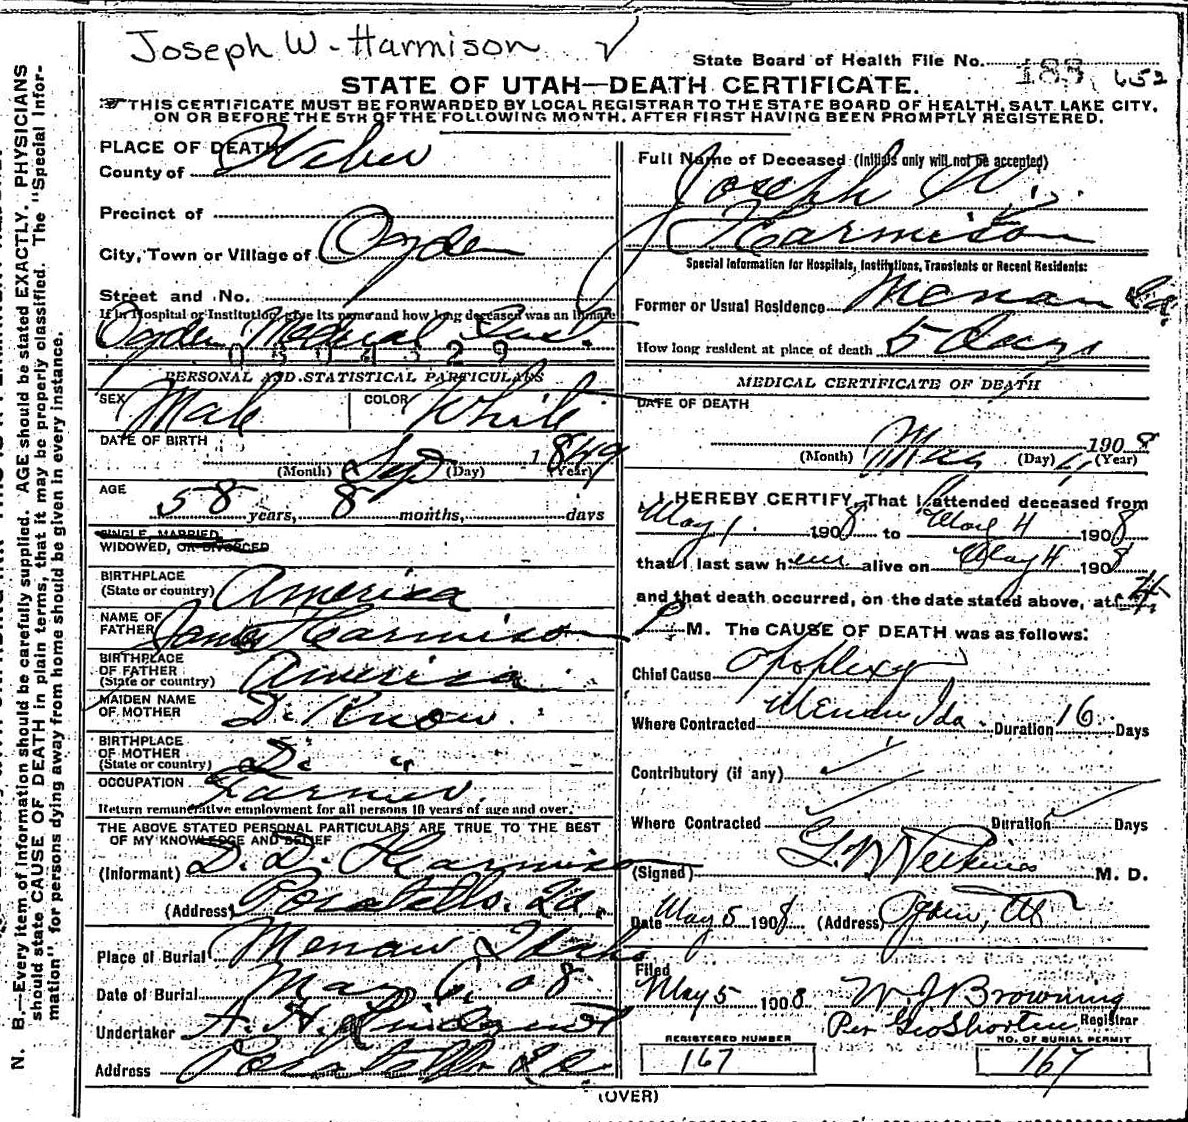 Joseph W. Harmison ✓
State Board of Health File No. 188 652
STATE OF UTAH—DEATH CERTIFICATE.
THIS CERTIFICATE MUST BE FORWARDED BY LOCAL REGISTRAR TO THE STATE BOARD OF HEALTH, SALT LAKE CITY,
ON OR BEFORE THE 5TH OF THE FOLLOWING MONTH, AFTER FIRST HAVING BEEN PROMPTLY REGISTERED.
N. B.—Every item of information should be carefully supplied. AGE should be stated EXACTLY. PHYSICIANS
should state CAUSE OF DEATH in plain terms, that it may be properly classified. The "Special Infor-
mation" for persons dying away from home should be given in every instance.
PLACE OF DEATH
County of Weber
Precinct of
City, Town or Village of Ogden
Street and No.
If in Hospital or Institution, give its name and how long deceased was an inmate
Ogden Medical
0 3 0 4 3 2 9
PERSONAL AND STATISTICAL PARTICULARS
SEX Male COLOR White
DATE OF BIRTH
(Month) Sep (Day) 1849 (Year)
AGE
58 years, 8 months, days
SINGLE, MARRIED,
WIDOWED, OR DIVORCED
BIRTHPLACE
(State or country) America
NAME OF
FATHER James Harmison
BIRTHPLACE
OF FATHER
(State or country) America
MAIDEN NAME
OF MOTHER D. Know.
BIRTHPLACE
OF MOTHER
(State or country) D. "
OCCUPATION Farmer.
Return remunerative employment for all persons 10 years of age and over.
THE ABOVE STATED PERSONAL PARTICULARS ARE TRUE TO THE BEST
OF MY KNOWLEDGE AND BELIEF
(Informant) D. D. Harmison
(Address) Pocatello. Ida.
Place of Burial Menan Idaho
Date of Burial May 6, 08
Undertaker A. H.
Address Pocatello Ida
Full Name of Deceased (Initials only will not be accepted)
Joseph W.
Harmison
Special Information for Hospitals, Institutions, Transients or Recent Residents:
Former or Usual Residence Menan Ida.
How long resident at place of death 5 days
MEDICAL CERTIFICATE OF DEATH
DATE OF DEATH
(Month) May (Day) 4 1908 (Year)
I HEREBY CERTIFY, That I attended deceased from
May 1 1908 to May 4 1908
that I last saw him alive on May 4 1908
and that death occurred, on the date stated above, at
P M. The CAUSE OF DEATH was as follows:
Chief Cause Apoplexy
Where Contracted Menan Ida. Duration 16 Days
Contributory (if any)
Where Contracted Duration Days
(Signed) M. D.
Date May 5 1908 (Address) Ogden, Ut
Filed
May 5 1908 W. J. Browning
Per Geo Shorten Registrar
REGISTERED NUMBER NO. OF BURIAL PERMIT
167 167
(OVER)